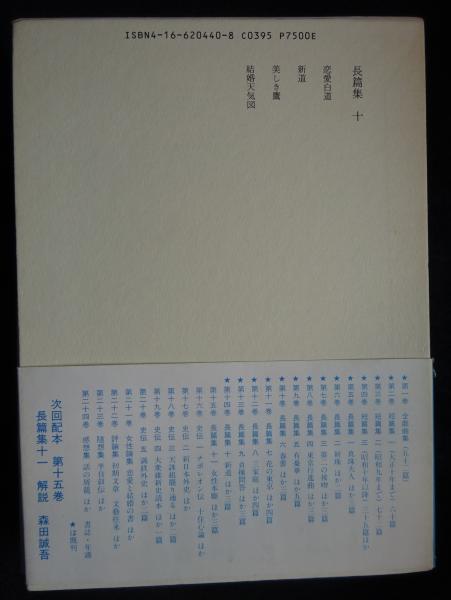 ISBN4-16-620440-8 C0395 P7500E
長篇集 十
恋愛白道
新道
美しき鷹
結婚天気図
★第一巻 全戯曲集(五十二篇)
★第二巻 短篇集一
★第三巻 短篇集二
★第四巻 短篇集三
★第五巻 長篇集一 真珠夫人 ほか
★第六巻 長篇集二
★第七巻 長篇集三 第二の接吻 ほか
★第八巻 長篇集四 東京行進曲 ほか
★第九巻 長篇集五 有憂華 ほか
★第十巻 長篇集六
★第十一巻 長篇集七 花の東京 ほか四篇
★第十二巻 長篇集八 三家庭 ほか四篇
★第十三巻 長篇集九 貞操問答 ほか三篇
★第十四巻 長篇集十 新道 ほか三篇
第十五巻 長篇集十一 女性本願 ほか三篇
第十六巻 史伝一
第十七巻 史伝二 新日本外史 ほか
第十八巻 史伝三
第十九巻 史伝四 大衆維新史読本 ほか一篇
第二十巻 史伝五 満鉄外史 ほか二篇
第二十一巻 女性論集 恋愛と結婚の書 ほか
第二十二巻 評論集 初期文章・文藝往来 ほか
第二十三巻 随想集 半自叙伝 ほか
第二十四巻 感想集 話の屑籠 ほか 書誌・年譜
★は既刊
次回配本 第十五巻
長篇集十一 解説 森田誠吾